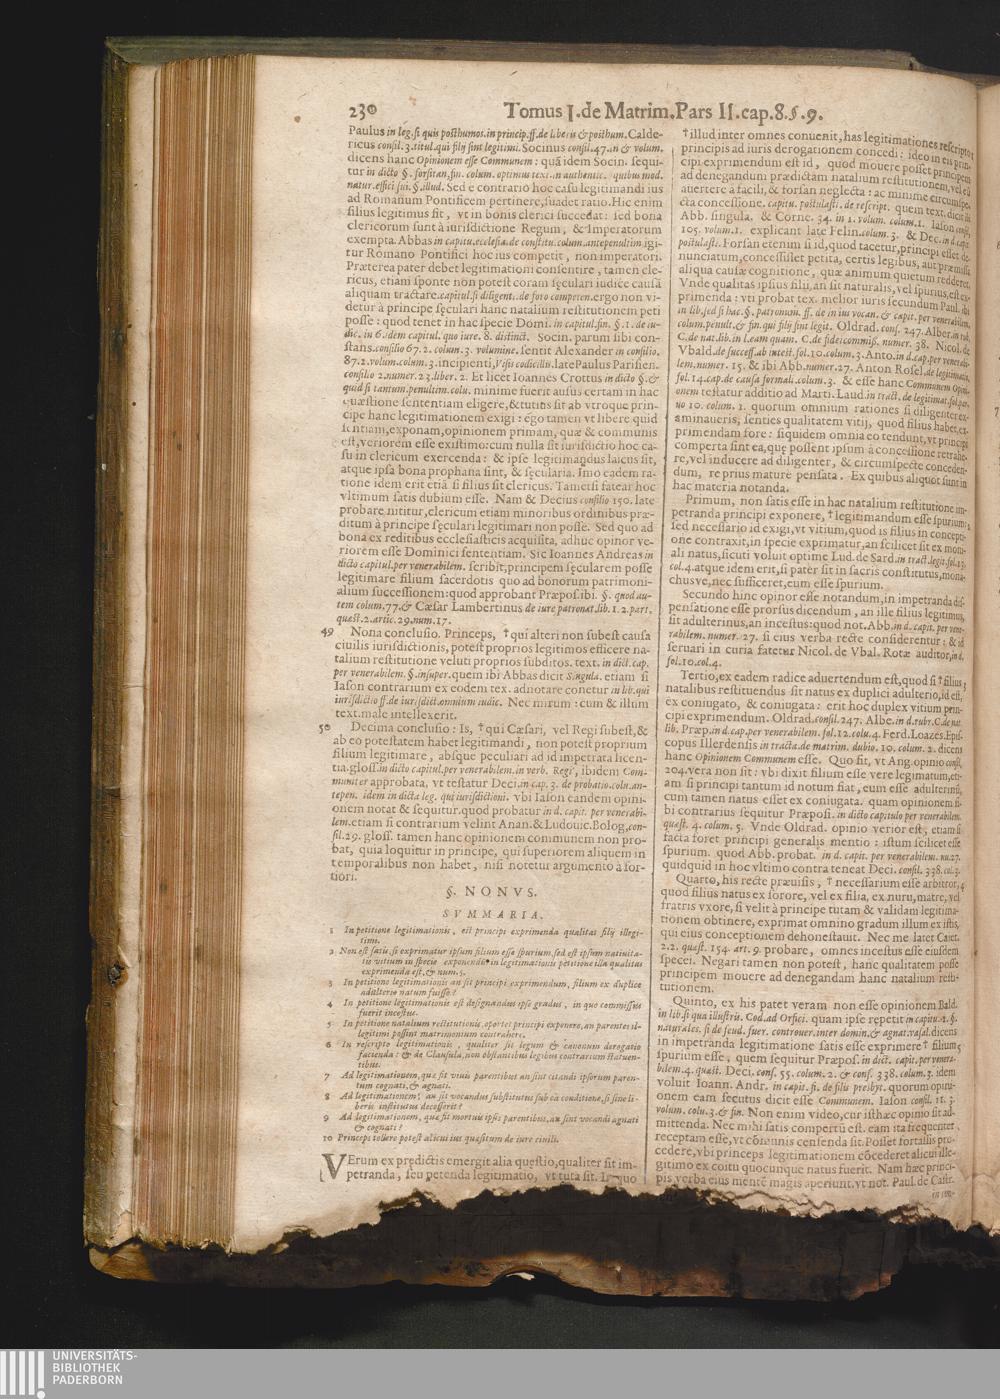 230 Tomus I. de Matrim. Pars II. cap. 8. §. 9.
Paulus in leg. si quis posthumos. in princip. ff. de liberis & posthum. Calde-
ricus consil. 3. titul. qui filij sint legitimi. Socinus consil. 47. in 4. volum.
dicens hanc Opinionem esse Communem: quã idem Socin. sequi-
tur in dicto §. forsitan, fin. colum. optimus text. in authentic. quibus mod.
natur. effici sui. §. illud. Sed e contrario hoc casu legitimandi ius
ad Romanum Pontificem pertinere, suadet ratio. Hic enim
filius legitimus fit, vt in bonis clerici succedat: sed bona
clericorum sunt à iurisdictione Regum, & Imperatorum
exempta. Abbas in capitu. ecclesia. de constitu. colum. antepenultim. igi-
tur Romano Pontifici hoc ius competit, non imperatori.
Præterea pater debet legitimationi consentire, tamen cle-
ricus, etiam sponte non potest coram sęculari iudice causã
aliquam tractare. capitul. si diligenti. de foro competen. ergo non vi-
detur à principe sęculari hanc natalium restitutionem peti
posse: quod tenet in hac specie Domi. in capitul. fin. §. 1. de iu-
dic. in 6. idem capitul. quo iure. 8. distinct. Socin. parum sibi con-
stans. consilio 67. 2. colum. 3. volumine. sentit Alexander in consilio.
87. 2. volum. colum. 3. incipienti, Visis codicillis. late Paulus Parisien.
consilio 2. numer. 23. liber. 2. Et licet Ioannes Crottus in dicto §. &
quid si tantum. penultim. colu. minime fuerit ausus certam in hac
quæstione sententiam eligere, & tutius sit ab vtroque prin-
cipe hanc legitimationem exigi: ego tamen vt libere quid
sentiam, exponam, opinionem primam, quæ & communis
est, veriorem esse existimo: cum nulla sit iurisdictio hoc ca-
su in clericum exercenda: & ipse legitimandus laicus sit,
atque ipsa bona prophana sint, & sęcularia. Imo eadem ra-
tione idem erit etiã si filius sit clericus. Tametsi fatear hoc
vltimum satis dubium esse. Nam & Decius consilio 150. late
probare nititur, clericum etiam minoribus ordinibus præ-
ditum à principe sęculari legitimari non posse. Sed quo ad
bona ex reditibus ecclesiasticis acquisita, adhuc opinor ve-
riorem esse Dominici sententiam. Sic Ioannes Andreas in
dicto capitul. per venerabilem. scribit, principem sęcularem posse
legitimare filium sacerdotis quo ad bonorum patrimoni-
alium successionem: quod approbant Præpos. ibi. §. quod au-
tem colum. 77. & Cæsar Lambertinus de iure patronat. lib. 1. 2. part.
quæst. 2. artic. 29. num. 17.
49 Nona conclusio. Princeps, † qui alteri non subest causa
ciuilis iurisdictionis, potest proprios legitimos efficere na-
talium restitutione veluti proprios subditos. text. in dict. cap.
per venerabilem. §. insuper. quem ibi Abbas dicit Singula. etiam si
Iason contrarium ex eodem tex. adnotare conetur in lib. qui
iurisdictio ff. de iurisdict. omnium iudic. Nec mirum: cum & illum
text. male intellexerit.
50 Decima conclusio: Is, † qui Cæsari, vel Regi subest, &
ab eo potestatem habet legitimandi, non potest proprium
filium legitimare, absque peculiari ad id impetrata licen-
tia. gloss. in dicto capitul. per venerabilem. in verb. Regi, ibidem Com-
muniter approbata, vt testatur Deci. in cap. 3. de probatio. colu. an-
tepen. idem in dicta leg. qui iurisdictioni. vbi Iason eandem opini-
onem notat & sequitur. quod probatur in d. capit. per venerabi-
lem. etiam si contrarium velint Anan. & Ludouic. Bolog. con-
sil. 29. gloss. tamen hanc opinionem communem non pro-
bat, quia loquitur in principe, qui superiorem aliquem in
temporalibus non habet, nisi notetur argumento à for-
tiori.
§. NONVS.
SVMMARIA.
1 In petitione legitimationis, est principi exprimenda qualitas filij illegi-
timi.
2 Non est satis, si exprimatur ipsum filium esse spurium, sed est ipsum natiuita-
tis vitium in specie exponendũ. in legitimationis petitione illa qualitas
exprimenda est, & num. 5.
3 In petitione legitimationis an sit principi exprimendum, filium ex duplice
adulterio natum fuisse?
4 In petitione legitimationis est designandus ipse gradus, in quo commissus
fuerit incestus.
5 In petitione natalium restitutionis, oportet principi exponere, an parentes il-
legitimi possint matrimonium contrahere.
6 In rescripto legitimationis, qualiter sit legum & canonum derogatio
facienda: & de Clausula, non obstantibus legibus contrarium statuen-
tibus.
7 Ad legitimationem, quæ fit viuis parentibus an sint citandi ipsorum paren-
tum cognati, & agnati.
8 Ad legitimationem, an sit vocandus substitutus sub ea conditione, si sine li-
beris institutus decesserit?
9 Ad legitimationem, quæ fit mortuis ipsis parentibus, an sint vocandi agnati
& cognati?
10 Princeps tollere potest alicui ius quæsitum de iure ciuili.
VErum ex predictis emergit alia questio, qualiter sit im-
petranda, seu petenda legitimatio, vt tuta sit. In quo
† illud inter omnes conuenit, has legitimationes rescripto
principis ad iuris derogationem concedi: ideo in eis prin-
cipi exprimendum est id, quod mouere posset principem
ad denegandum prædictam natalium restitutionem, vel eũ
auertere à facili, & forsan neglecta: ac minime circumspe-
cta concessione. capitu. postulasti. de rescript. quem text. dicit ibi
Abb. singula. & Corne. 34. in 1. volum. colum. 1. Iason consil.
105. volum. 1. explicant late Felin. colum. 3. & Dec. in d. capit.
postulasti. Forsan etenim si id, quod tacetur, principi esset de-
nunciatum, concessisset petita, certis legibus, aut præmissa
aliqua causæ cognitione, quæ animum quietum redderet.
Vnde qualitas ipsius filii, an sit naturalis, vel spurius, est ex-
primenda: vti probat tex. melior iuris secundum Paul. ibi
in lib. sed si hac. §. patronum. ff. de in ius vocan. & capit. per venerabilem,
colum. penult. & fin. qui filij sint legit. Oldrad. cons. 247. Alber. in rub.
C. de nat. lib. in l. eam quam. C. de fideicommiss. numer. 38. Nicol. de
Vbald. de success. ab intest. fol. 10. colum. 3. Anto. in d. cap. per venerabi-
lem. numer. 15. & ibi Abb. numer. 27. Anton Rosel. de legitimatio.
fol. 14. cap. de causa formali. colum. 3. & esse hanc Communem Opini-
onem testatur additio ad Marti. Laud. in tract. de legitimat. fol.
10. colum. 1. quorum omnium rationes si diligenter ex-
aminaueris, senties qualitatem vitij, quod filius habet, ex-
primendam fore: siquidem omnia eo tendunt, vt principi
comperta sint ea, quę possent ipsum à concessione retrahe-
re, vel inducere ad diligenter, & circumspecte conceden-
dum, re prius mature pensata. Ex quibus aliquot sunt in
hac materia notanda.
Primum, non satis esse in hac natalium restitutione im-
petranda principi exponere, † legitimandum esse spurium:
sed necessario id exigi, vt vitium, quod is filius in concepti-
one contraxit, in specie exprimatur, an scilicet sit ex moni-
ali natus, sicuti voluit optime Lud. de Sard. in tract. legit. fol. 13.
col. 4. atque idem erit, si pater sit in sacris constitutus, mona-
chusve, nec sufficeret, eum esse spurium.
Secundo hinc opinor esse notandum, in impetranda dis-
pensatione esse prorsus dicendum, an ille filius legitimus,
sit adulterinus, an incestus: quod not. Abb. in d. capit. per vene-
rabilem. numer. 27. si eius verba recte considerentur: & id
seruari in curia fatetur Nicol. de Vbal. Rotæ auditor, in d.
fol. 10. col. 4.
Tertio, ex eadem radice aduertendum est, quod si † filius 3
natalibus restituendus sit natus ex duplici adulterio, id est,
ex coniugato, & coniugata: erit hoc duplex vitium prin-
cipi exprimendum. Oldrad. consil. 247. Albe. in d. rubr. C. de nat.
lib. Præp. in d. cap. per venerabilem. fol. 12. colu. 4. Ferd. Loazes. Epis-
copus Illerdensis in tracta. de matrim. dubio. 10. colum. 2. dicens
hanc Opinionem Communem esse. Quo fit, vt Ang. opinio consil.
204. vera non sit: vbi dixit filium esse vere legimatum, eti-
am si principi tantum id notum fiat, eum esse adulterinũ,
cum tamen natus esset ex coniugata. quam opinionem si-
bi contrarius sequitur Præposi. in dicto capitulo per venerabilem.
quæst. 4. colum. 5. Vnde Oldrad. opinio verior est, etiam si
facta foret principi generalis mentio: istum scilicet esse
spurium. quod Abb. probat. in d. capit. per venerabilem. nu. 27.
quidquid in hoc vltimo contra teneat Deci. consil. 338. col. 3.
Quarto, his recte præuisis, † necessarium esse arbitror, 4
quod filius natus ex sorore, vel ex filia, ex nuru, matre, vel
fratris vxore, si velit à principe tutam & validam legitima-
tionem obtinere, exprimat omnino gradum illum ex istis,
qui eius conceptionem dehonestauit. Nec me latet Caiet.
2. 2. quæst. 154. art. 9. probare, omnes incestus esse eiusdem
speciei. Negari tamen non potest, hanc qualitatem posse
principem mouere ad denegandam hanc natalium resti-
tutionem.
Quinto, ex his patet veram non esse opinionem Bald.
in lib. si qua illustris. Cod. ad Orfici. quam ipse repetit in capitu. 1. §.
naturales. si de feud. fuer. controuer. inter domin. & agnat. vasal. dicens
in impetranda legitimatione satis esse exprimere † filium 5
spurium esse, quem sequitur Præpos. in dict. capit. per venera-
bilem. 4. quæst. Deci. cons. 55. colum. 2. & cons. 338. colum. 3. idem
voluit Ioann. Andr. in capit. fi. de filis presbyt. quorum opini-
onem eam secutus dicit esse Communem. Iason consil. 11. 3.
volum. colu. 3. & fin. Non enim video, cur isthæc opinio sit ad-
mittenda. Nec mihi satis compertũ est. eam ita frequenter
receptam esse, vt cõmunis censenda sit. Posset fortassis pro-
cedere, vbi princeps legitimationem cõcederet alicui ille-
gitimo ex coitu quocunque natus fuerit. Nam hæc princi-
pis verba eius mentẽ magis aperiunt. vt not. Paul. de Castr.
UNIVERSITÄTS-
BIBLIOTHEK
PADERBORN